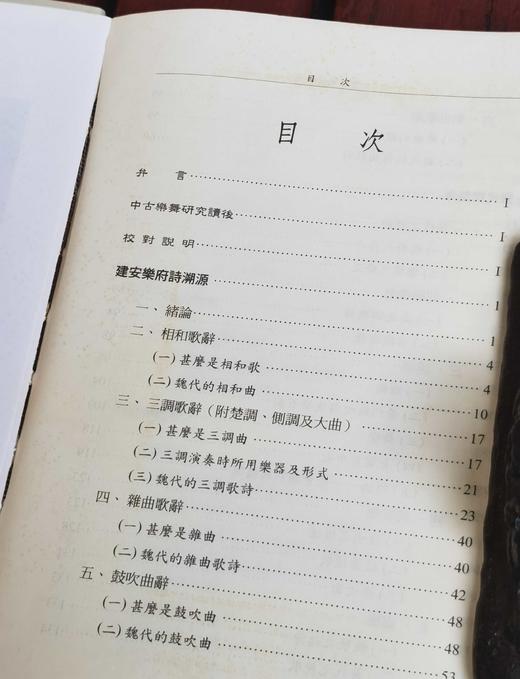 目 次
目 次
弁 言……I
中古樂舞研究讀後……I
校對說明……I
建安樂府詩溯源……1
一、緒論……1
二、相和歌辭……4
(一)甚麼是相和歌……4
(二)魏代的相和曲……10
三、三調歌辭(附楚調、側調及大曲)……17
(一)甚麼是三調曲……17
(二)三調演奏時所用樂器及形式……21
(三)魏代的三調歌詩……23
四、雜曲歌辭……40
(一)甚麼是雜曲……40
(二)魏代的雜曲歌詩……42
五、鼓吹曲辭……48
(一)甚麼是鼓吹曲……48
(二)魏代的鼓吹曲……53